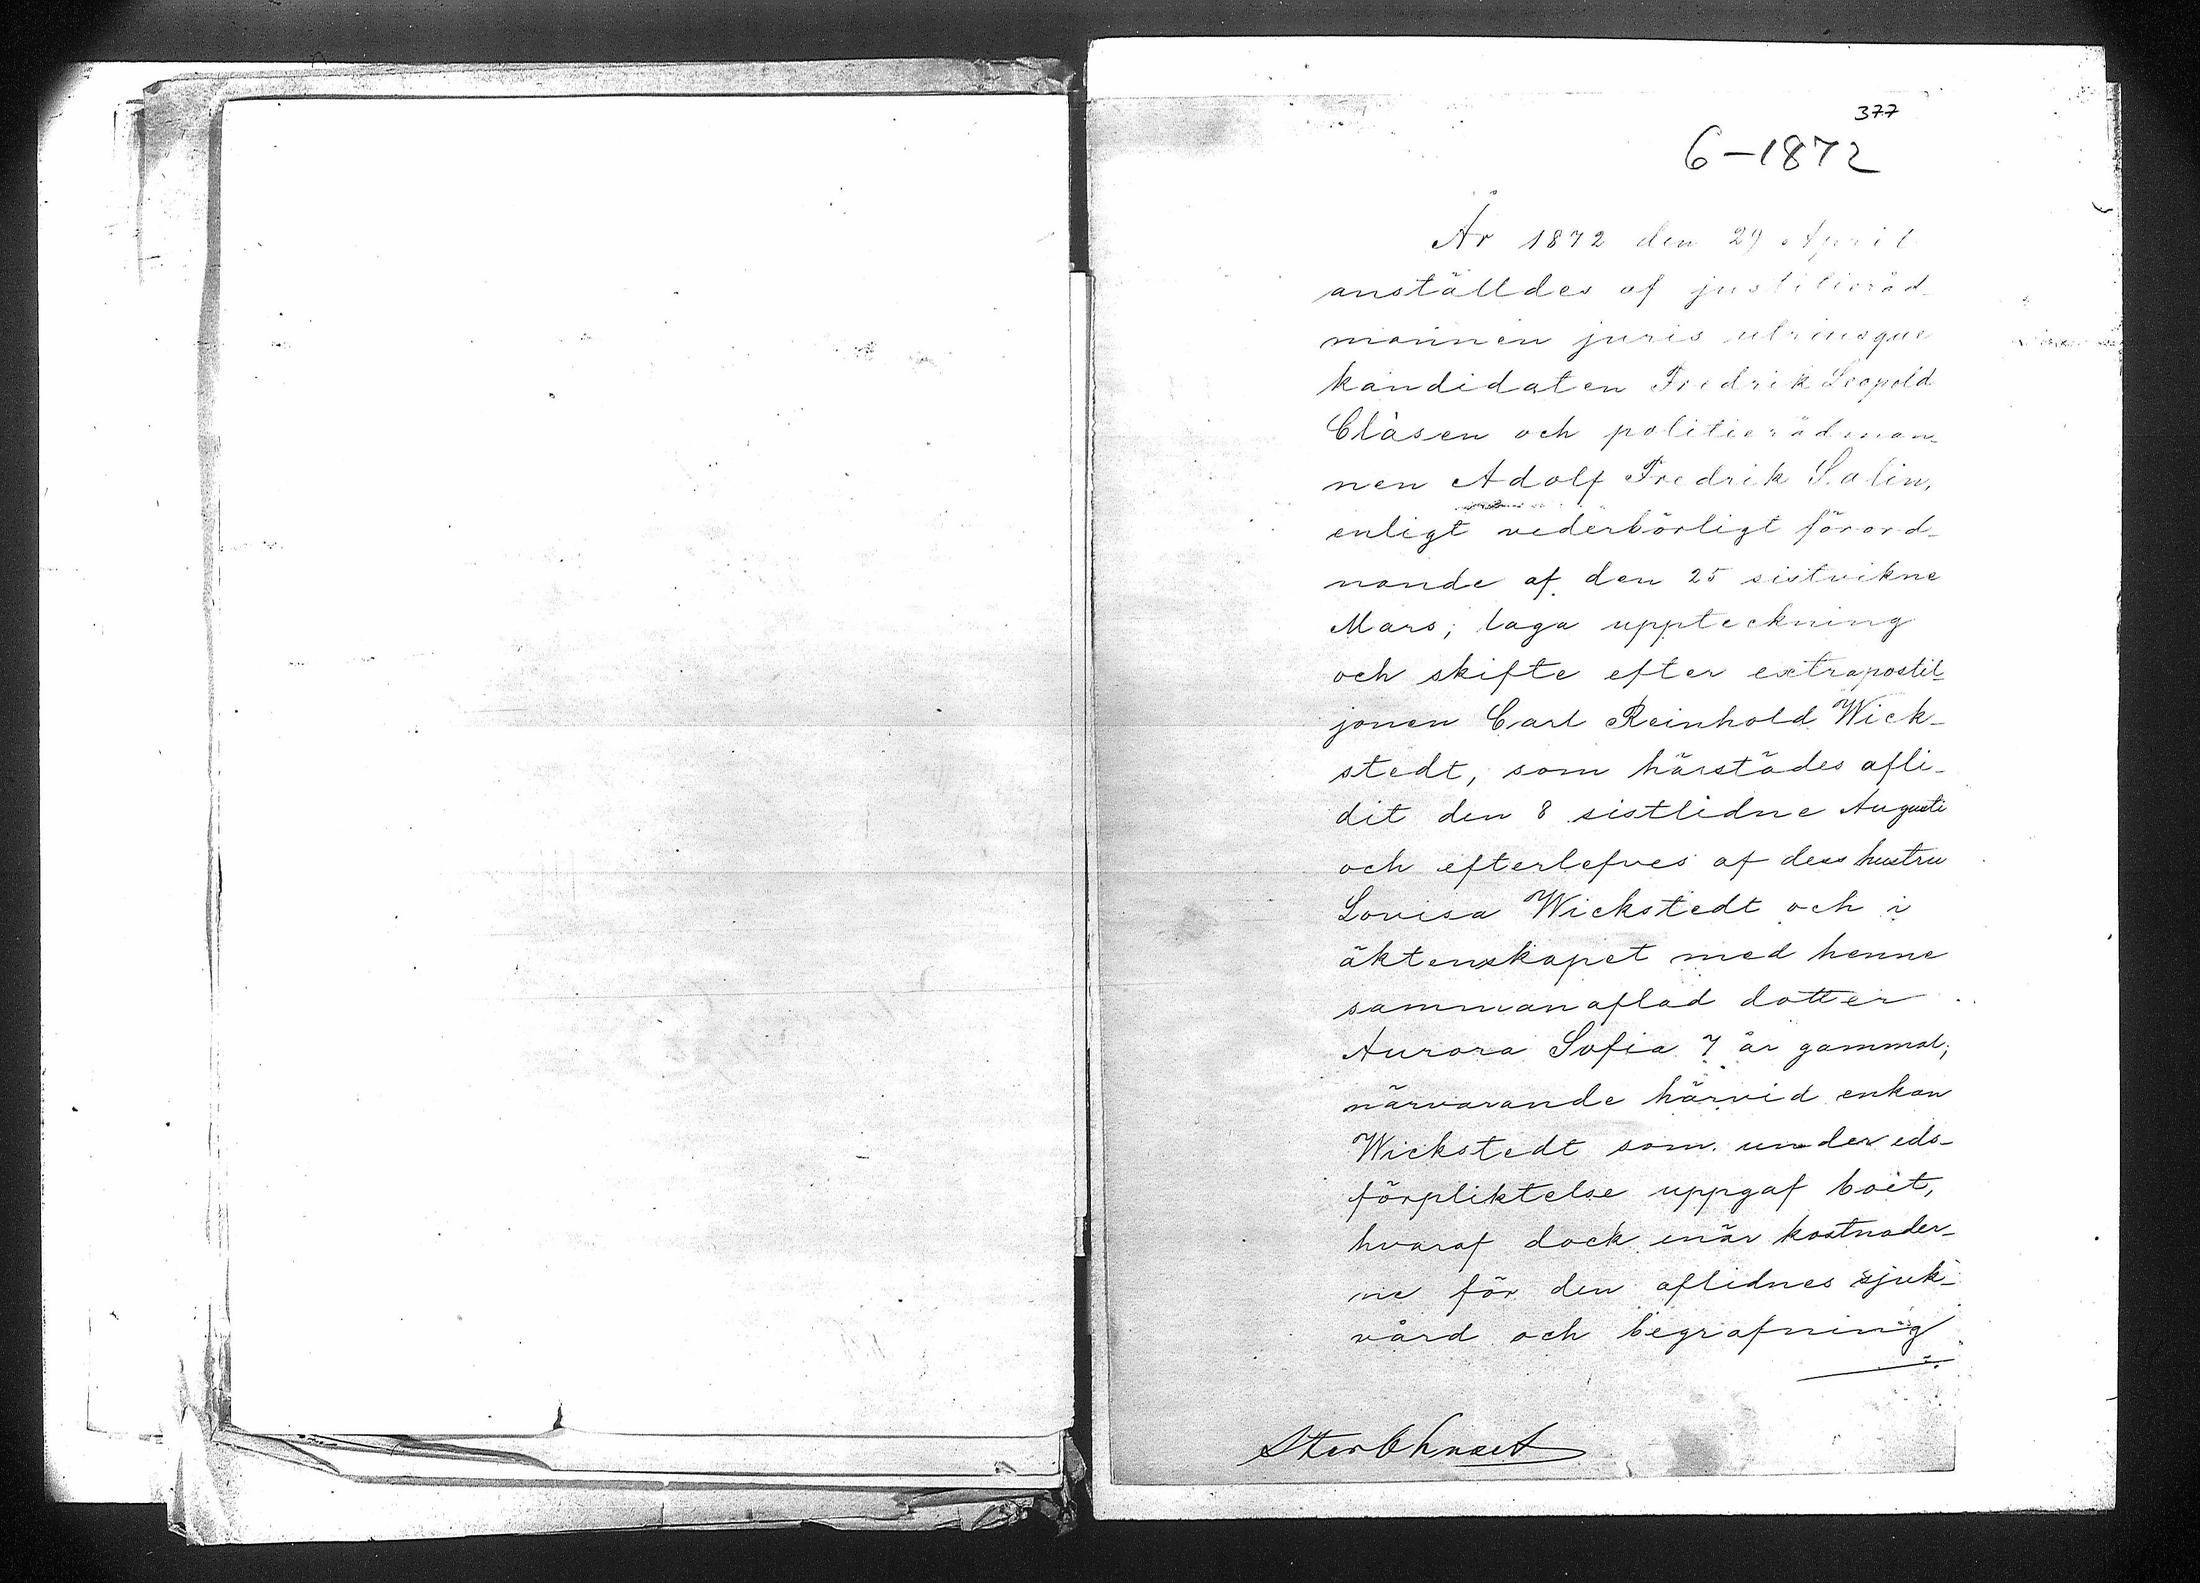 377
6-1872
År 1872 den 29 April
anställdes af justitieråd-
mannen juris utriusque
kandidaten Fredrik Leopold
Clásen och politierådman-
nen Adolf Fredrik Salin,
enligt vederbörligt förord-
nande af den 25 sistvikne
Mars, laga uppteckning
och skifte efter extrapostil-
jonen Carl Reinhold Wick-
stedt, som härstädes afli-
dit den 8 sistlidne Augusti
och efterlefves af dess hustru
Lovisa Wickstedt och i
äktenskapet med henne
sammanaflad dotter
Aurora Sofia 7 år gammal;
närvarande härvid enkan
Wickstedt som under eds-
förpliktelse uppgaf boet,
hvaraf dock enär kostnader-
ne för den aflidnes sjuk-
vård och begrafning